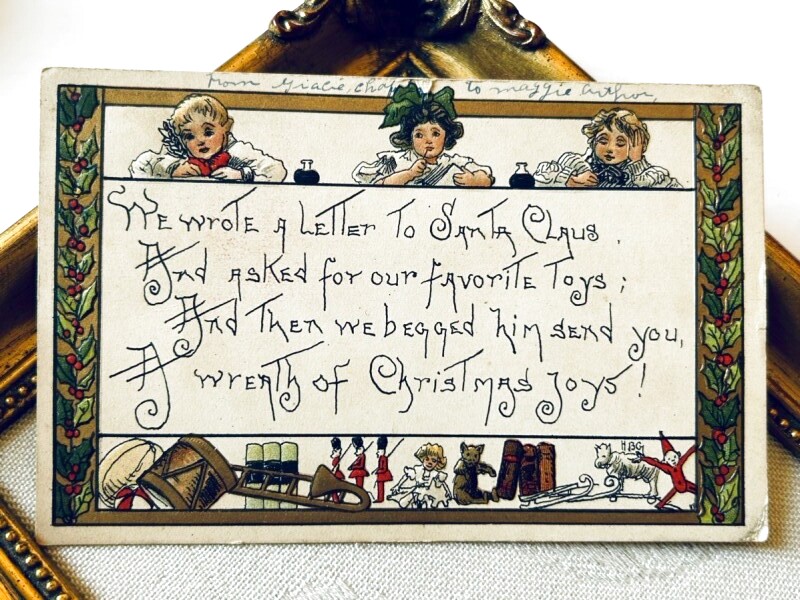 from Gracie to maggie Arthor,
We wrote a Letter To Santa Claus,
And asked for our favorite Toys;
And Then we begged him send you,
A wreath of Christmas Joys!
HBG